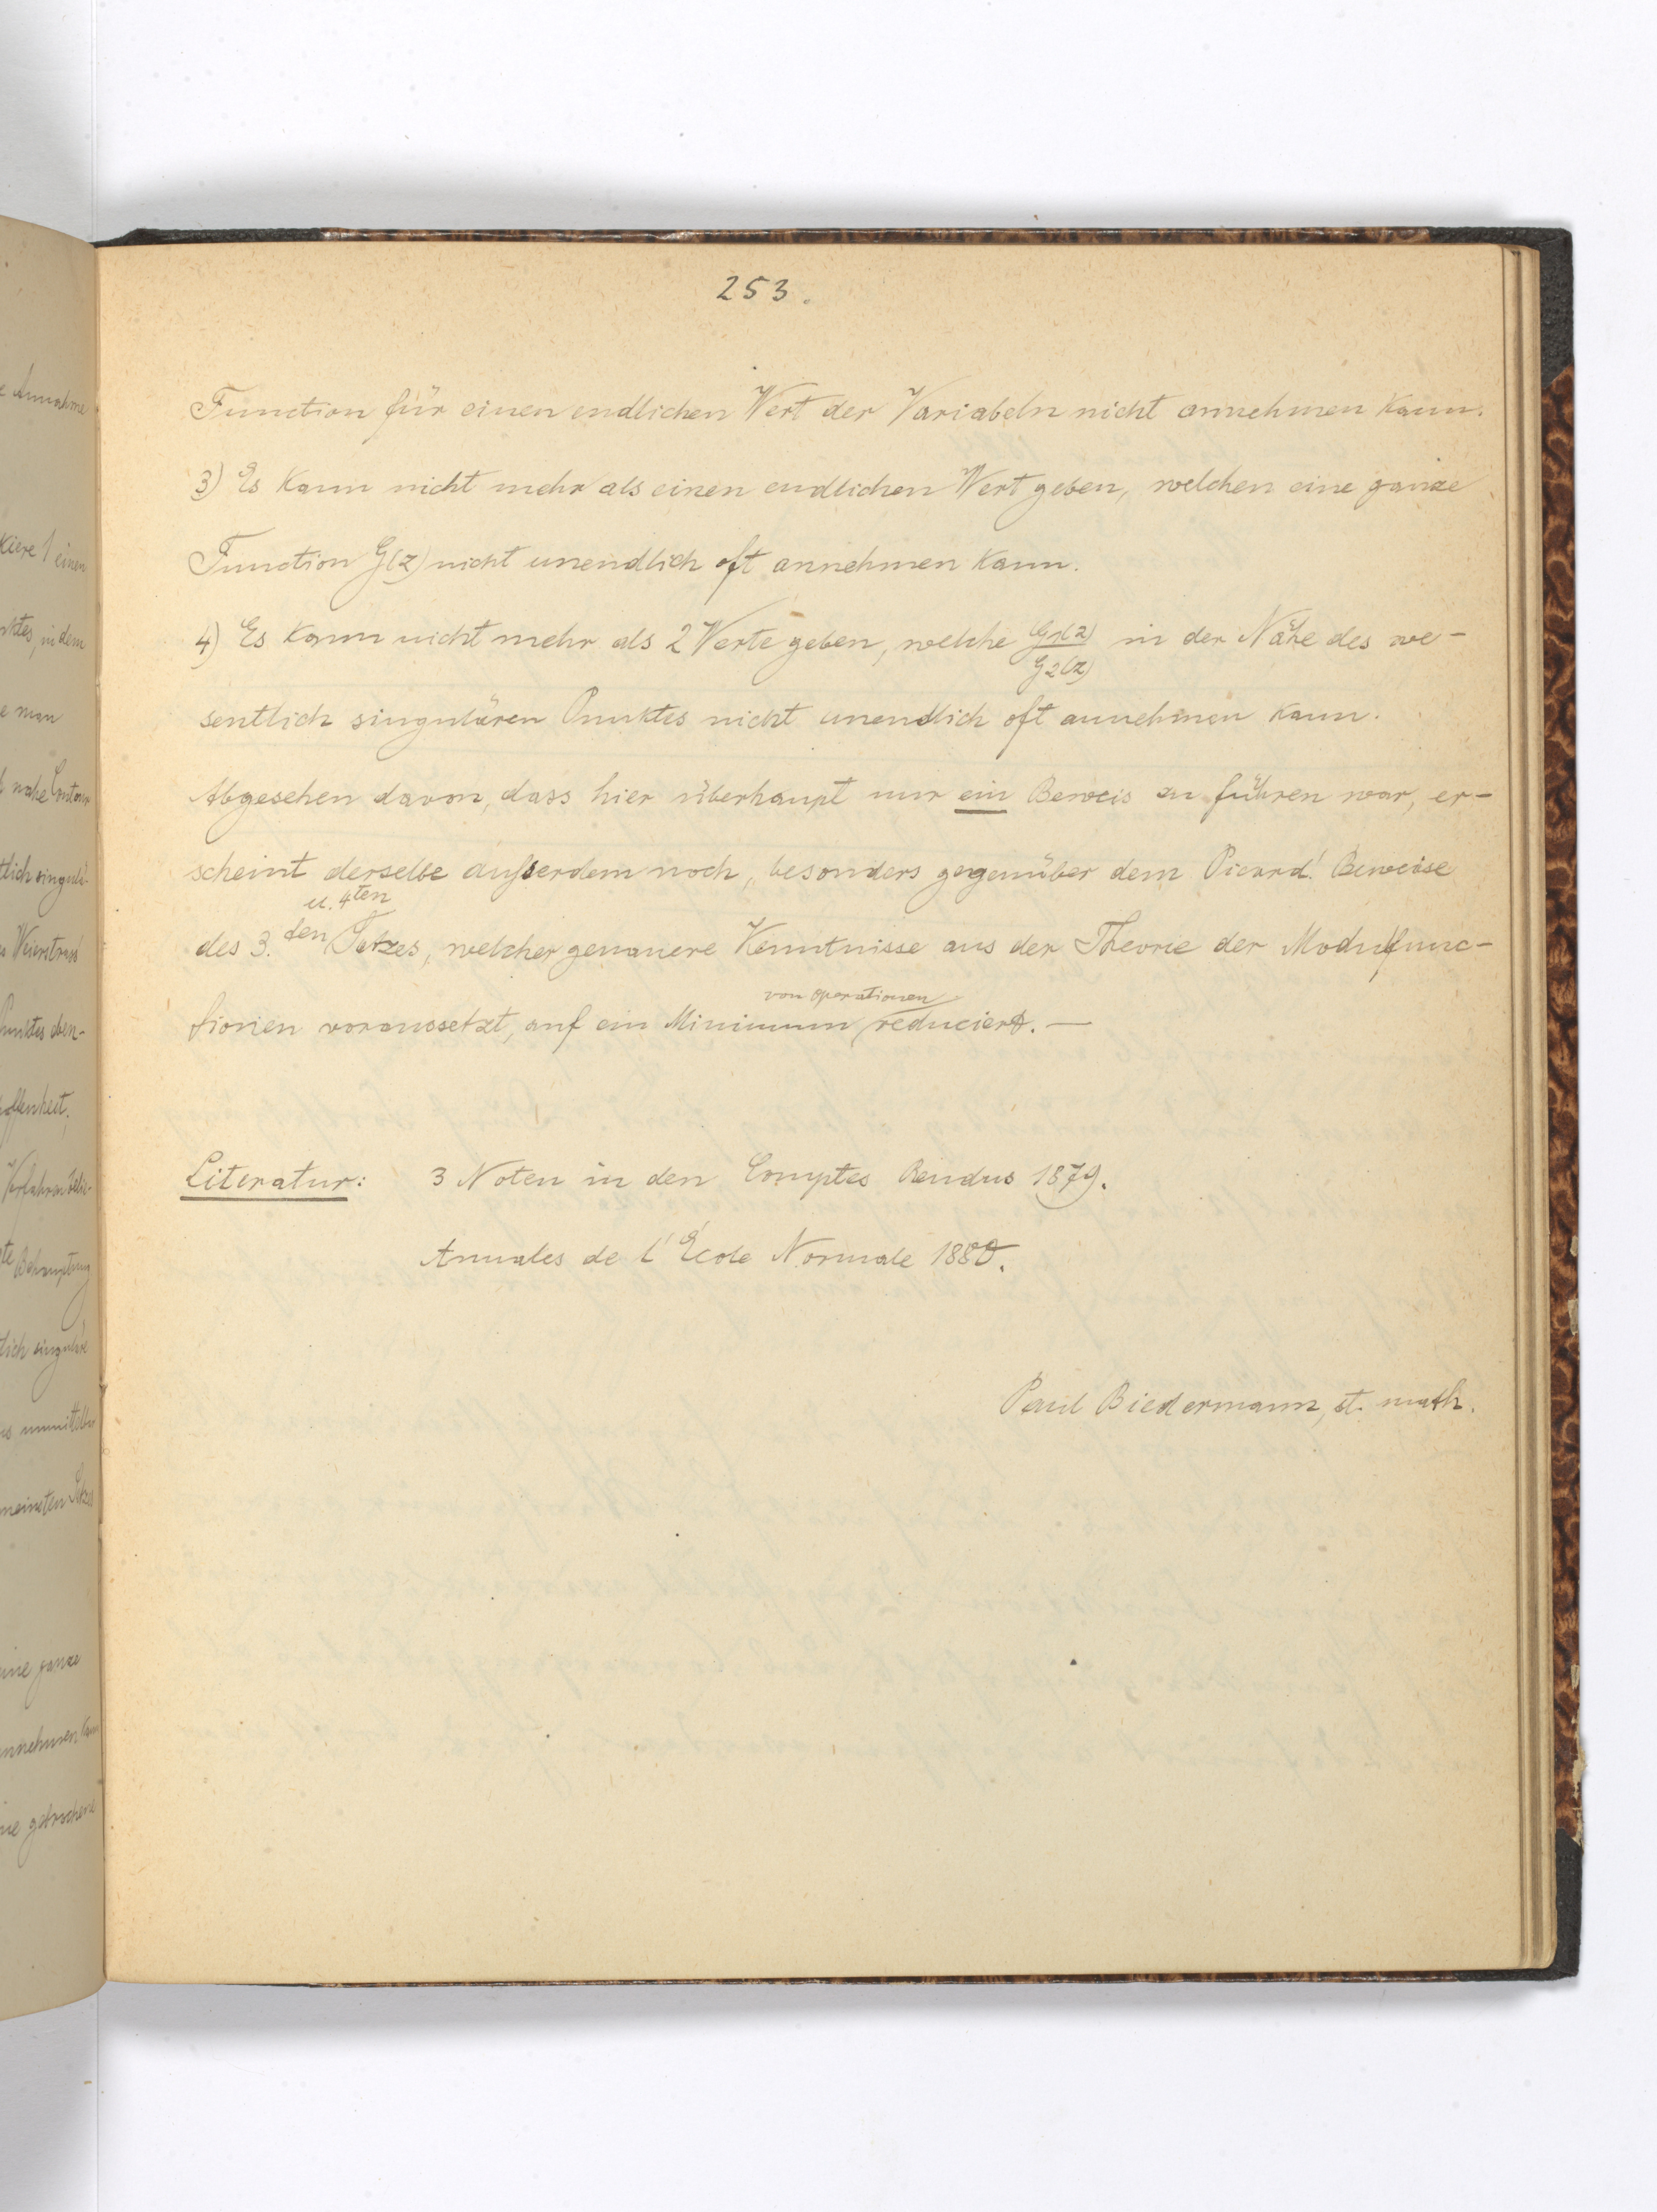 253.
Function für einen endlichen Wert der Variabeln nicht annehmen kann.
3) Es kann nicht mehr als einen endlichen Wert geben, welchen eine ganze
Function G(z) nicht unendlich oft annehmen kann.
4) Es kann nicht mehr als 2 Werte geben, welche G1(z)/G2(z) in der Nähe des we-
sentlich singulären Punktes nicht unendlich oft annehmen kann.
Abgesehen davon, dass hier überhaupt nur ein Beweis zu führen war, er-
scheint derselbe außerdem noch, besonders gegenüber dem Picard'. Beweise
u. 4ten
des 3. den Satzes, welcher genauere Kenntnisse aus der Theorie der Modulfunc-
von Operationen
tionen voraussetzt, auf ein Minimum reduciert. —
Literatur: 3 Noten in den Comptes Rendus 1879.
Annales de l'École Normale 1880.
Paul Biedermann, st. math.
Annahme
einen
in dem
man
nahe Contour
Weierstrass
Punktes eben-
Behauptung
singuläre
ganze
annehmen kann